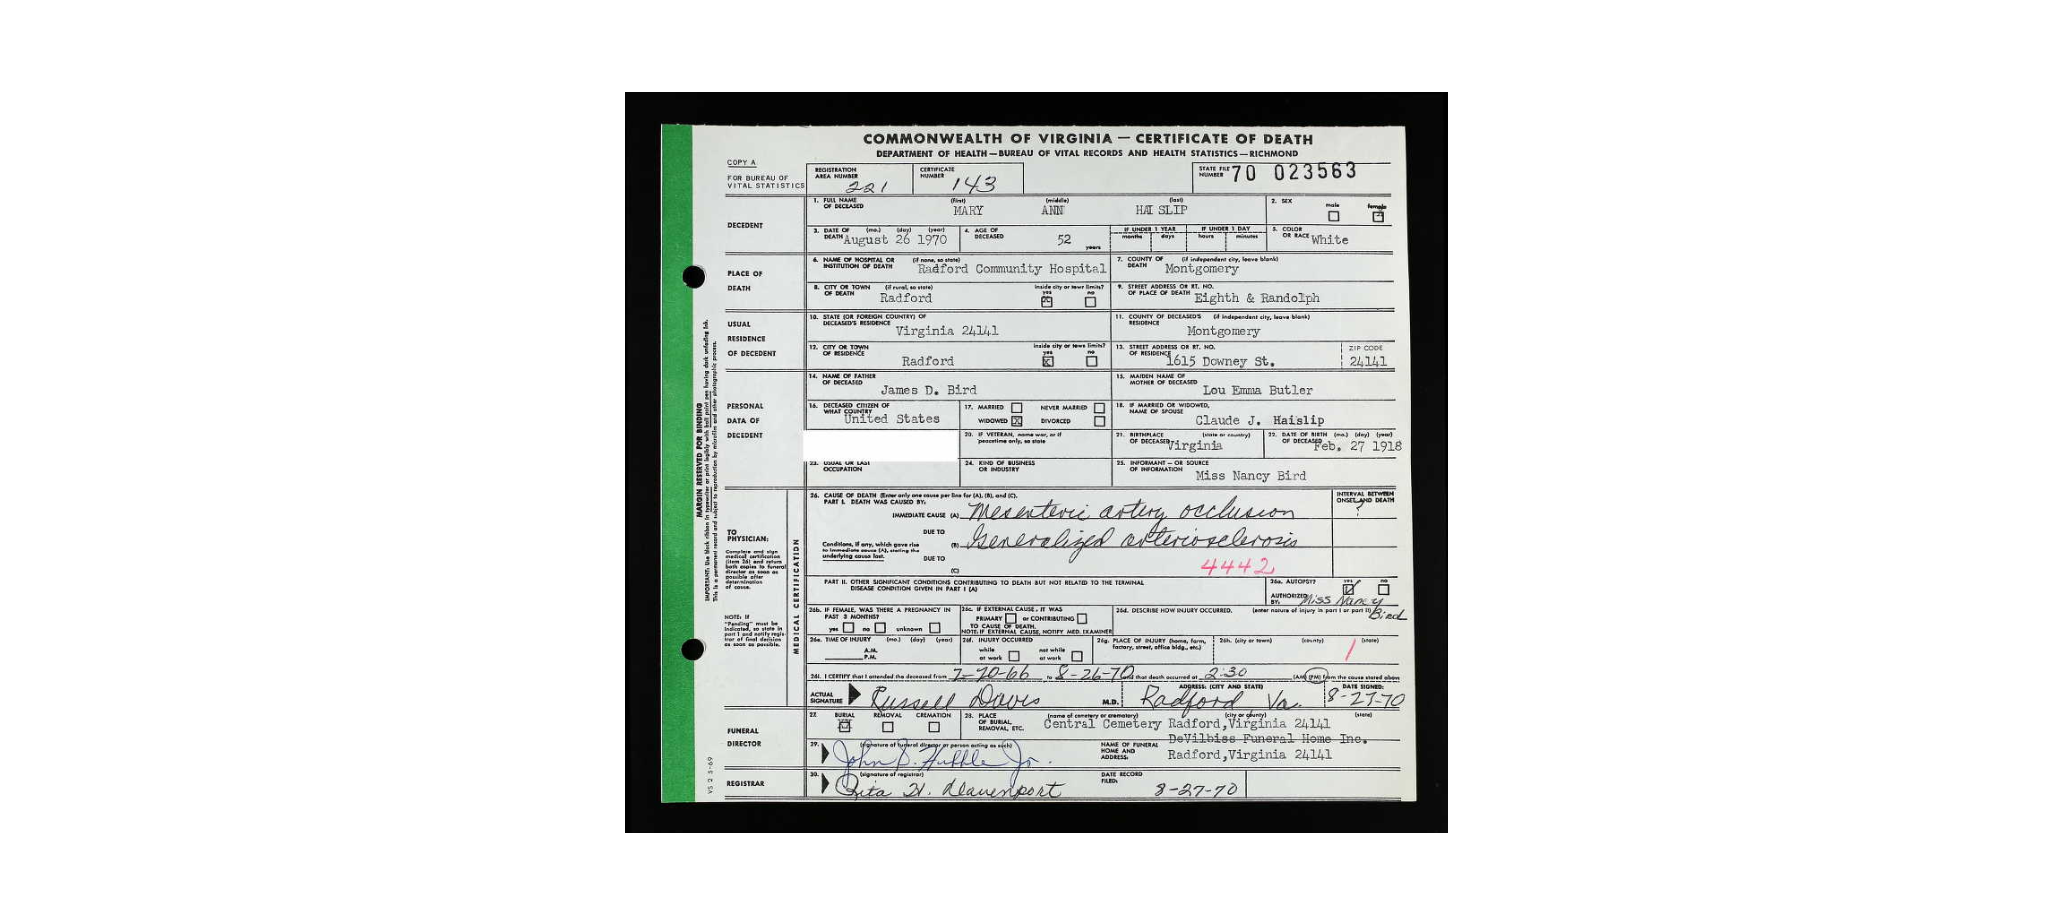 COMMONWEALTH OF VIRGINIA — CERTIFICATE OF DEATH
DEPARTMENT OF HEALTH — BUREAU OF VITAL RECORDS AND HEALTH STATISTICS — RICHMOND
COPY A
FOR BUREAU OF VITAL STATISTICS
REGISTRATION AREA NUMBER 221
CERTIFICATE NUMBER 143
STATE FILE NUMBER 70 023563
DECEDENT
1. FULL NAME OF DECEASED (first) (middle) (last)
MARY ANN HAISLIP
2. SEX male female
3. DATE OF DEATH (mo.) (day) (year) August 26 1970
4. AGE OF DECEASED 52 years
IF UNDER 1 YEAR months days
IF UNDER 1 DAY hours minutes
5. COLOR OR RACE White
PLACE OF DEATH
6. NAME OF HOSPITAL OR INSTITUTION OF DEATH (if none, so state) Radford Community Hospital
7. COUNTY OF DEATH (if independent city, leave blank) Montgomery
8. CITY OR TOWN OF DEATH (if rural, so state) Radford
inside city or town limits? yes no
9. STREET ADDRESS OR RT. NO. OF PLACE OF DEATH Eighth & Randolph
USUAL RESIDENCE OF DECEDENT
10. STATE (OR FOREIGN COUNTRY) OF DECEASED'S RESIDENCE Virginia 24141
11. COUNTY OF DECEASED'S RESIDENCE (if independent city, leave blank) Montgomery
12. CITY OR TOWN OF RESIDENCE Radford
inside city or town limits? yes no
13. STREET ADDRESS OR RT. NO. OF RESIDENCE 1615 Downey St.
ZIP CODE 24141
PERSONAL DATA OF DECEDENT
14. NAME OF FATHER OF DECEASED James D. Bird
15. MAIDEN NAME OF MOTHER OF DECEASED Lou Emma Butler
16. DECEASED CITIZEN OF WHAT COUNTRY United States
17. MARRIED NEVER MARRIED
WIDOWED X DIVORCED
18. IF MARRIED OR WIDOWED, NAME OF SPOUSE Claude J. Haislip
20. IF VETERAN, name war, or if peacetime only, so state
21. BIRTHPLACE OF DECEASED (state or country) Virginia
22. DATE OF BIRTH OF DECEASED (mo.) (day) (year) Feb. 27 1918
23. USUAL OR LAST OCCUPATION
24. KIND OF BUSINESS OR INDUSTRY
25. INFORMANT — OR SOURCE OF INFORMATION Miss Nancy Bird
MARGIN RESERVED FOR BINDING
MEDICAL CERTIFICATION
TO PHYSICIAN:
Complete and sign medical certification (item 26) and return both copies to funeral director as soon as possible after determination of cause.
NOTE: If "Pending" must be indicated, so state in part I and notify registrar of final decision as soon as possible.
26. CAUSE OF DEATH (Enter only one cause per line for (A), (B), and (C).
PART I. DEATH WAS CAUSED BY:
INTERVAL BETWEEN ONSET AND DEATH
IMMEDIATE CAUSE (A) Mesenteric artery occlusion
DUE TO
Conditions, if any, which gave rise to immediate cause (A), stating the underlying cause last.
(B) Generalized arteriosclerosis
DUE TO
4442
(C)
PART II. OTHER SIGNIFICANT CONDITIONS CONTRIBUTING TO DEATH BUT NOT RELATED TO THE TERMINAL DISEASE CONDITION GIVEN IN PART I (A)
26a. AUTOPSY? yes no
AUTHORIZED BY: Miss Nancy Bird
26b. IF FEMALE, WAS THERE A PREGNANCY IN PAST 3 MONTHS?
yes no unknown
26c. IF EXTERNAL CAUSE, IT WAS
PRIMARY or CONTRIBUTING
TO CAUSE OF DEATH.
NOTE: IF EXTERNAL CAUSE, NOTIFY MED. EXAMINER
26d. DESCRIBE HOW INJURY OCCURRED. (enter nature of injury in part I or part II)
26e. TIME OF INJURY (mo.) (day) (year)
A.M.
P.M.
26f. INJURY OCCURRED
while at work not while at work
26g. PLACE OF INJURY (home, farm, factory, street, office bldg., etc.)
26h. (city or town) (county) (state)
26i. I CERTIFY that I attended the deceased from 7-20-66 to 8-26-70 and that death occurred at 2:30 (AM) (PM) from the cause stated above
ACTUAL SIGNATURE Russell Davis M.D.
ADDRESS: (CITY AND STATE) Radford Va.
DATE SIGNED: 8-27-70
FUNERAL DIRECTOR
27. BURIAL REMOVAL CREMATION
28. PLACE OF BURIAL, REMOVAL, ETC. (name of cemetery or crematory) (city or county) (state)
Central Cemetery Radford,Virginia 24141
29. (signature of funeral director or person acting as such)
NAME OF FUNERAL HOME AND ADDRESS:
DeVilbiss Funeral Home Inc.
Radford,Virginia 24141
REGISTRAR
30. (signature of registrar)
Rita H. Davenport
DATE RECORD FILED: 8-27-70
VS 2 5-69